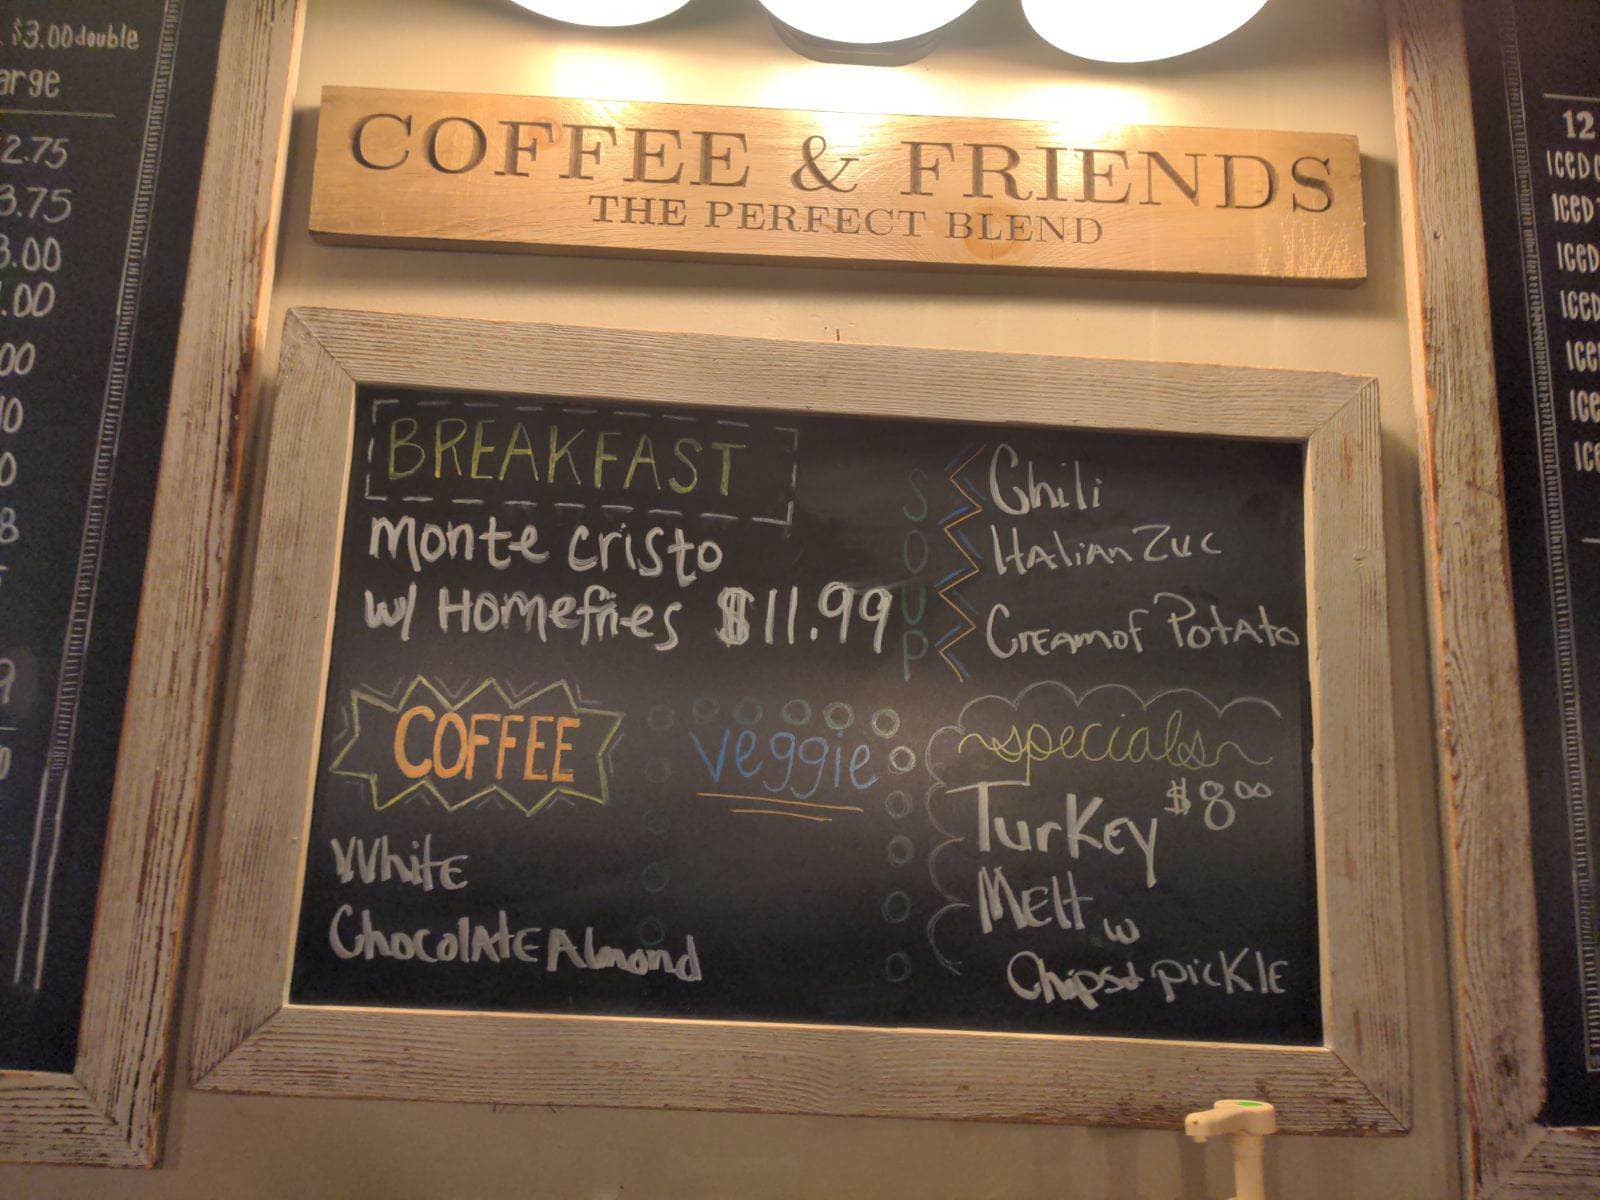 $3.00 double
arge
2.75
3.75
3.00
.00
00
10
0
8
9
COFFEE & FRIENDS
THE PERFECT BLEND
BREAKFAST
Monte Cristo
w/ Homefries $11.99
SOUP
Chili
Italian Zuc
Cream of Potato
COFFEE
White
Chocolate Almond
veggie
specials
$8.00
Turkey
Melt w
Chips & pickle
12
ICED
ICED
ICED
ICED
ICE
ICE
ICE